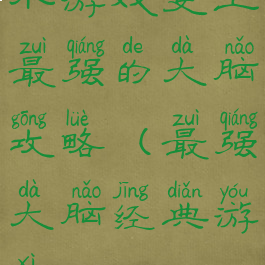 zuì qiáng de dà nǎo
最强的大脑
gōng lüè zuì qiáng
攻略（最强
dà nǎo jīng diǎn yóu
大脑经典游
xì